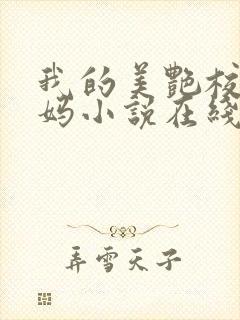 我的美艷校
妈小說在綫
弄雪天子